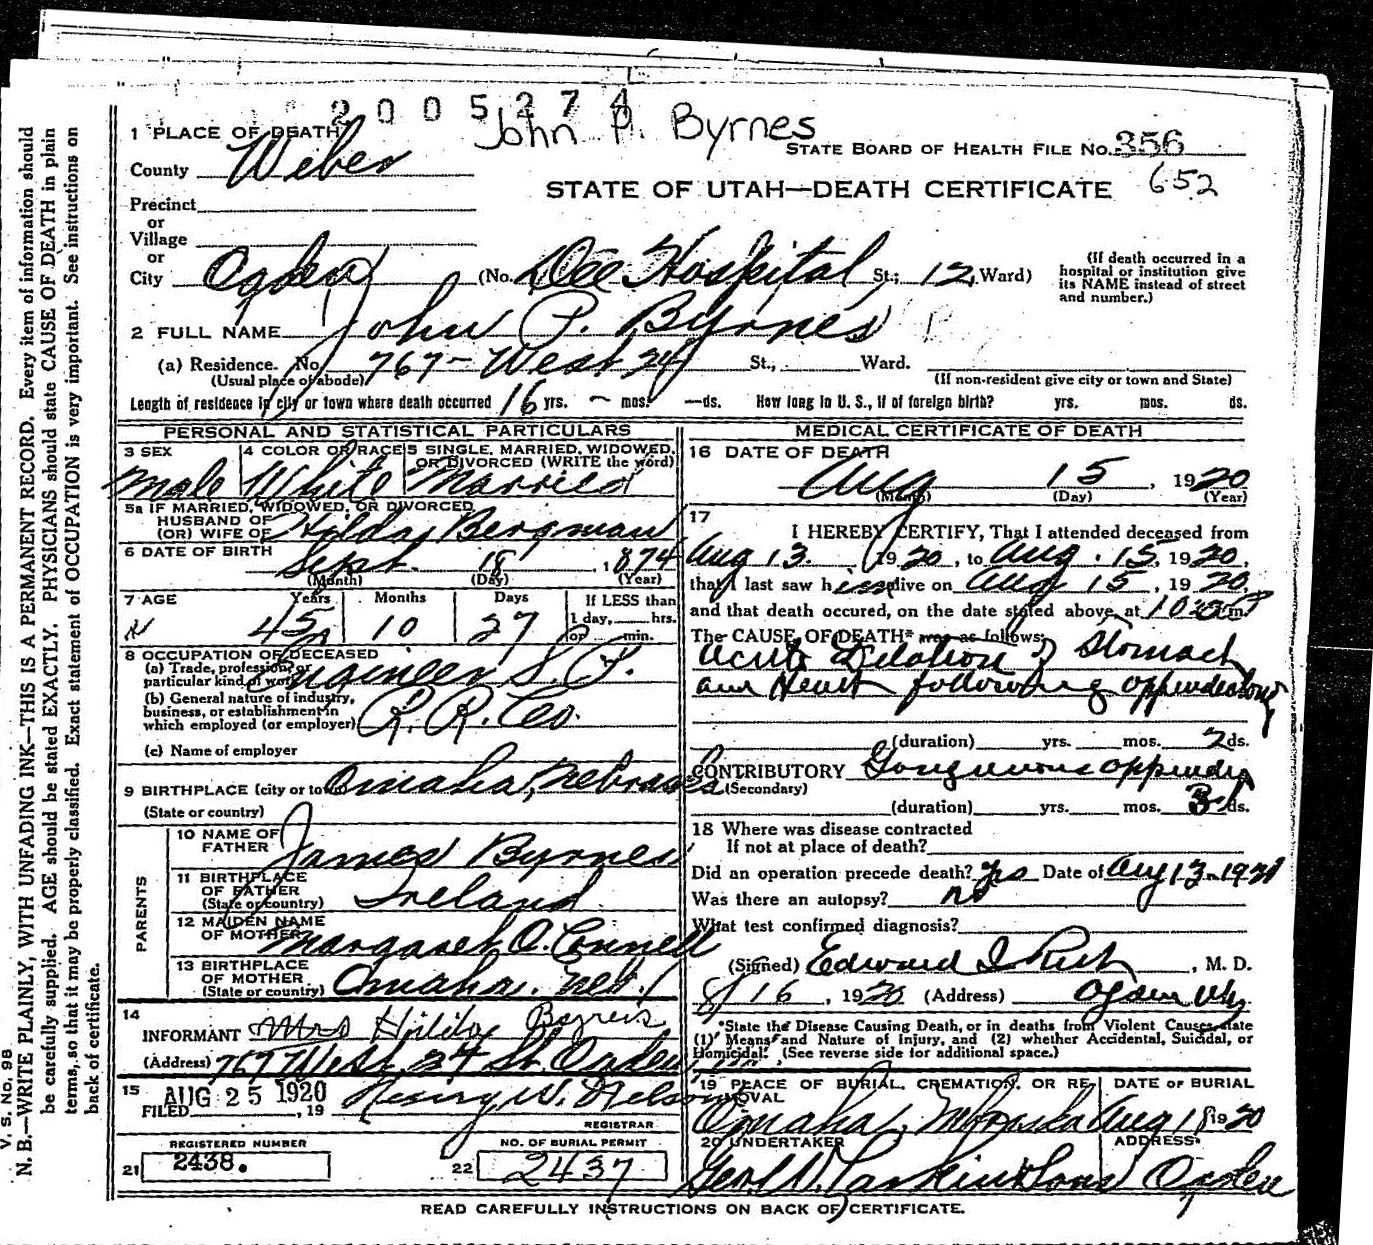 2005274
John P. Byrnes
1 PLACE OF DEATH
STATE BOARD OF HEALTH FILE No. 356
County Weber
STATE OF UTAH—DEATH CERTIFICATE 652
Precinct
or
Village
or
City Ogden (No. Dee Hospital St.; 12 Ward)
(If death occurred in a hospital or institution give its NAME instead of street and number.)
2 FULL NAME John P. Byrnes
(a) Residence. No. 767- West 24 St., Ward.
(Usual place of abode) (If non-resident give city or town and State)
Length of residence in city or town where death occurred 16 yrs. – mos. — ds. How long in U. S., if of foreign birth? yrs. mos. ds.
PERSONAL AND STATISTICAL PARTICULARS
3 SEX 4 COLOR OR RACE 5 SINGLE, MARRIED, WIDOWED, OR DIVORCED (WRITE the word)
Male White Married
5a IF MARRIED, WIDOWED, OR DIVORCED
HUSBAND OF
(OR) WIFE OF Hilda Bergman
6 DATE OF BIRTH Sept. 18, 1874
(Month) (Day) (Year)
7 AGE Years Months Days If LESS than
1 day, hrs.
or min.
45 10 27
8 OCCUPATION OF DECEASED
(a) Trade, profession or
particular kind of work Engineer S. P.
(b) General nature of industry,
business, or establishment in
which employed (or employer) R. R. Co.
(c) Name of employer
9 BIRTHPLACE (city or town) Omaha, Nebraska
(State or country)
PARENTS
10 NAME OF FATHER James Byrnes
11 BIRTHPLACE OF FATHER (State or country) Ireland
12 MAIDEN NAME OF MOTHER Margaret O. Connell
13 BIRTHPLACE OF MOTHER (State or country) Omaha, Neb.
14
INFORMANT Mrs Hilda Byrnes
(Address) 767 West 24 St. Ogden
15 FILED AUG 25 1920, 19 Henry W. Nelson
REGISTRAR
REGISTERED NUMBER NO. OF BURIAL PERMIT
21 2438. 22 2437
MEDICAL CERTIFICATE OF DEATH
16 DATE OF DEATH
Aug 15, 1920
(Month) (Day) (Year)
17
I HEREBY CERTIFY, That I attended deceased from
Aug 13, 1920, to Aug. 15, 1920,
that I last saw him alive on Aug 15, 1920,
and that death occured, on the date stated above, at m.
The CAUSE OF DEATH* was as follows:
Acute Dilation of Stomach
and Heart following appendectomy
(duration) yrs. mos. 2 ds.
CONTRIBUTORY Gangrenous appendix
(Secondary)
(duration) yrs. mos. 3 ds.
18 Where was disease contracted
If not at place of death?
Did an operation precede death? Yes Date of Aug 13-1920
Was there an autopsy? no
What test confirmed diagnosis?
(Signed) Edward I Rich, M. D.
8/16, 1920 (Address) Ogden Utah
*State the Disease Causing Death, or in deaths from Violent Causes, state
(1) Means and Nature of Injury, and (2) whether Accidental, Suicidal, or
Homicidal. (See reverse side for additional space.)
19 PLACE OF BURIAL, CREMATION, OR REMOVAL DATE OF BURIAL
Omaha, Nebraska Aug 18 1920
20 UNDERTAKER ADDRESS
Geo. W. Larkin & Sons Ogden
READ CAREFULLY INSTRUCTIONS ON BACK OF CERTIFICATE.
V. S. No. 98
N. B.—WRITE PLAINLY, WITH UNFADING INK—THIS IS A PERMANENT RECORD. Every item of information should
be carefully supplied. AGE should be stated EXACTLY. PHYSICIANS should state CAUSE OF DEATH in plain
terms, so that it may be properly classified. Exact statement of OCCUPATION is very important. See instructions on
back of certificate.